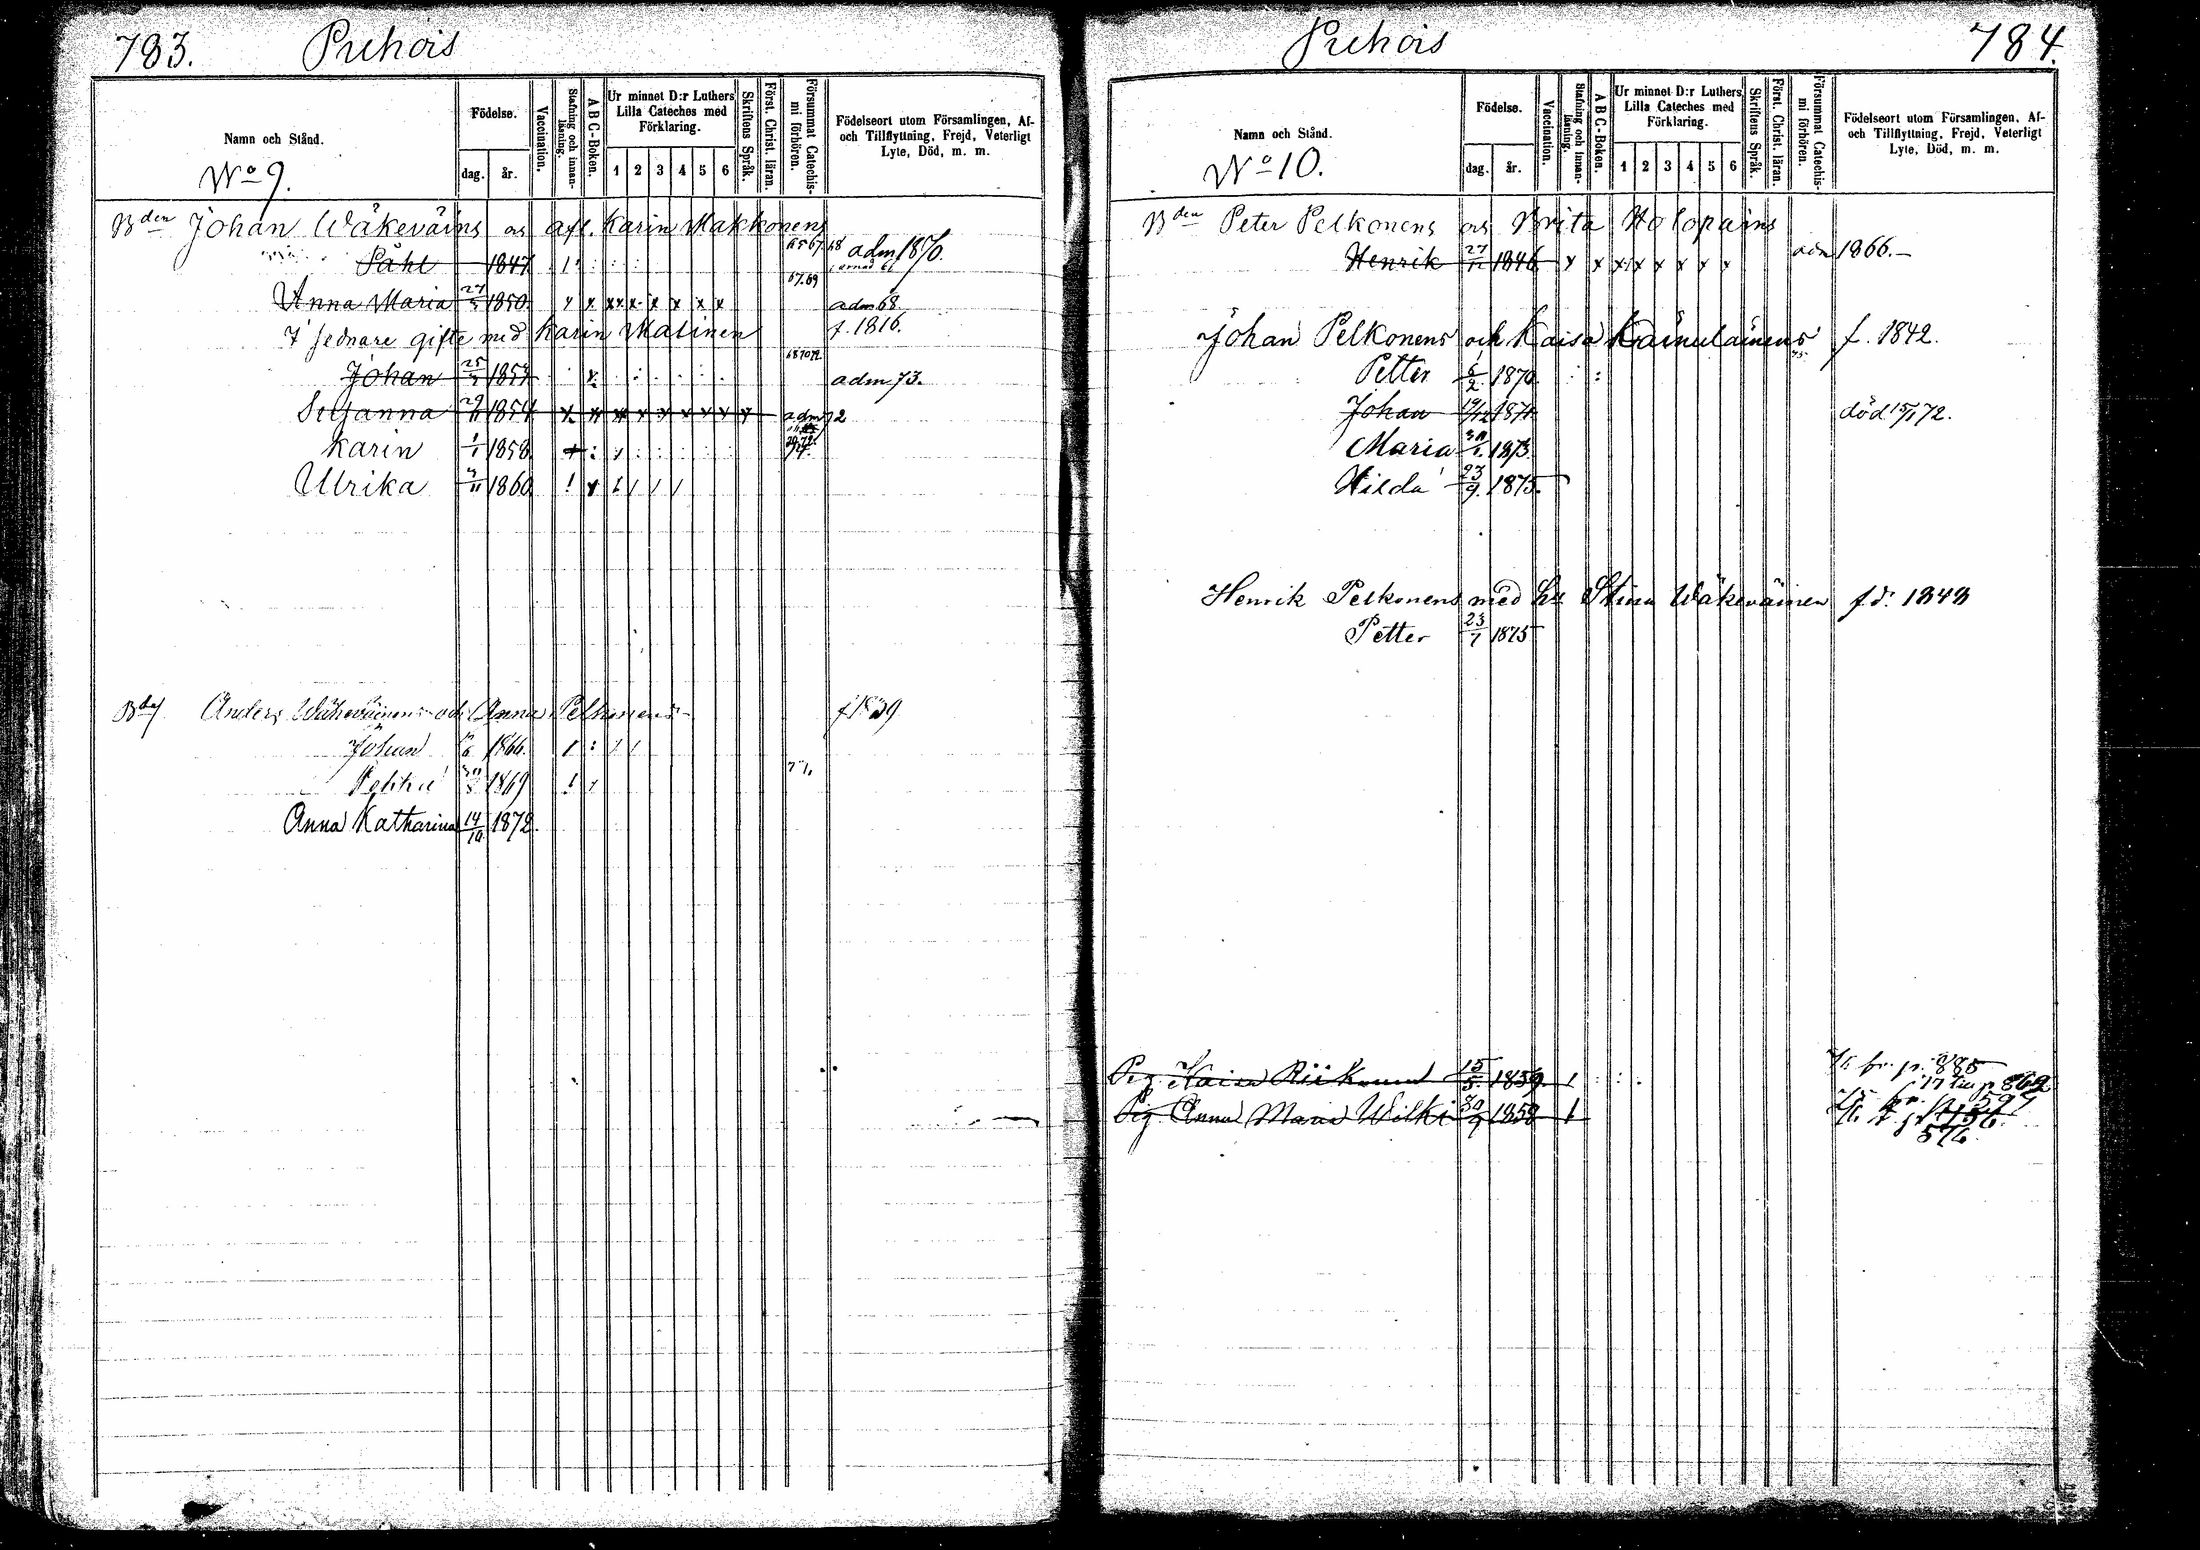 783. Puhois
Namn och Stånd.
No 9.
Födelse.
dag. år.
Vaccination.
Stafning och innanläsning.
A B C-Boken.
Ur minnet D:r Luthers Lilla Cateches med Förklaring.
1 2 3 4 5 6
Skriftens Språk.
Först. Christ. läran.
Försummat Catechismi förhören.
Födelseort utom Församlingen, Af- och Tillflyttning, Frejd, Veterligt Lyte, Död, m. m.
Bden Johan Wäkeväins os afl. Karin Makkonens
Påhl 1847 65 67 68 adm 1870.
Anna Maria 27/3 1850 67.69 adm 68.
I sednare gifte med Karin Matinen f. 1816.
Johan 25/3 1853 adm 73.
Setjanna 29/11 1854 adm 72
Karin 1/1 1858
Ulrika 3/11 1860
Anders Wäkeväinens och Anna Pelkonens f 1839
Johan 1866.
1869
Anna Katharina 14/10 1872.
Puhois 784.
Namn och Stånd.
No 10.
Födelse.
dag. år.
Vaccination.
Stafning och innanläsning.
A B C-Boken.
Ur minnet D:r Luthers Lilla Cateches med Förklaring.
1 2 3 4 5 6
Skriftens Språk.
Först. Christ. läran.
Försummat Catechismi förhören.
Födelseort utom Församlingen, Af- och Tillflyttning, Frejd, Veterligt Lyte, Död, m. m.
Bden Peter Pelkonens os Brita Holopains
Henrik 27/11 1846 adm 1866.
Johan Pelkonens och Kaisa Kainulainens f. 1842.
Petter 6/2 1870
Johan 19/12 1871 död 15/1 72.
Maria 30/1 1873.
Hilda 23/9. 1875.
Henrik Pelkonens med hu Stina Wäkeväinen fd. 1848
Petter 23/7 1875
Pig. Kaisa Riikonen 15/5. 1859. 885
Pig Anna Maria Wilki 30/9 1858
576